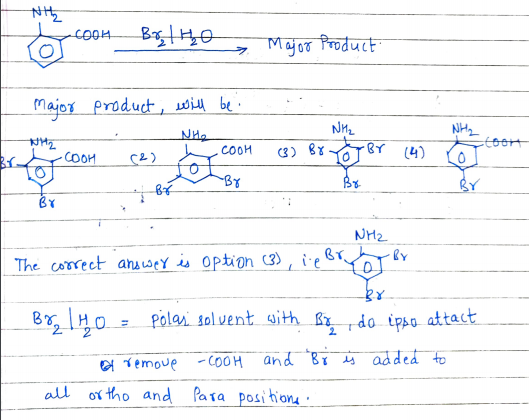 NH2
COOH Br2 | H2O Major Product.
Major product, will be.
NH2 NH2 NH2 NH2
Br COOH (2) COOH (3) Br Br (4) COOH
Br Br Br Br Br
NH2
The correct answer is option (3), i.e Br Br
Br
Br2 | H2O = polar solvent with Br2, do ipso attact
remove -COOH and Br is added to
all ortho and Para positions.